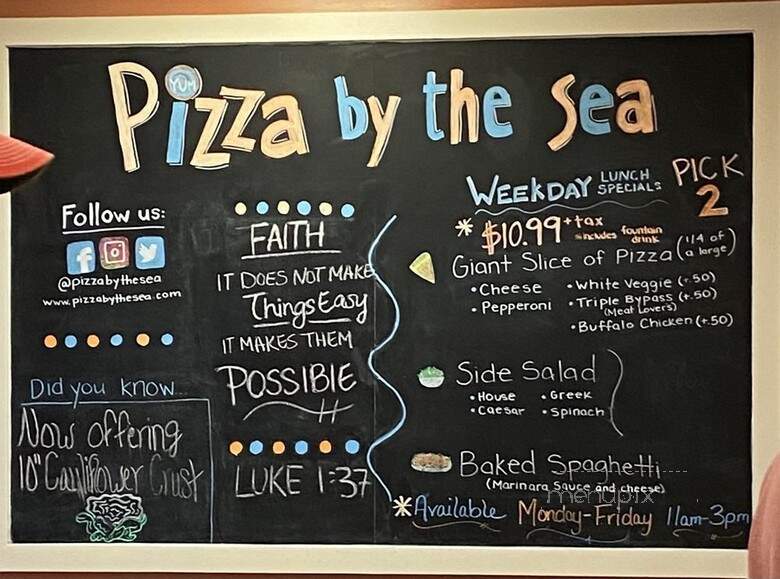 YUM
Pizza by the Sea
Follow us:
@pizzabythesea
www.pizzabythesea.com
Did you know...
Now offering
10" Cauliflower Crust
FAITH
IT DOES NOT MAKE
Things Easy
IT MAKES THEM
POSSIBLE
LUKE 1:37
WEEKDAY LUNCH SPECIALS
PICK 2
* $10.99 + tax
*includes fountain drink
Giant Slice of Pizza (1/4 of a large)
• Cheese
• Pepperoni
• White Veggie (+.50)
• Triple Bypass (+.50)
(Meat Lovers)
• Buffalo Chicken (+.50)
Side Salad
• House
• Caesar
• Greek
• Spinach
Baked Spaghetti
(Marinara Sauce and cheese)
menupix
*Available Monday-Friday 11am-3pm